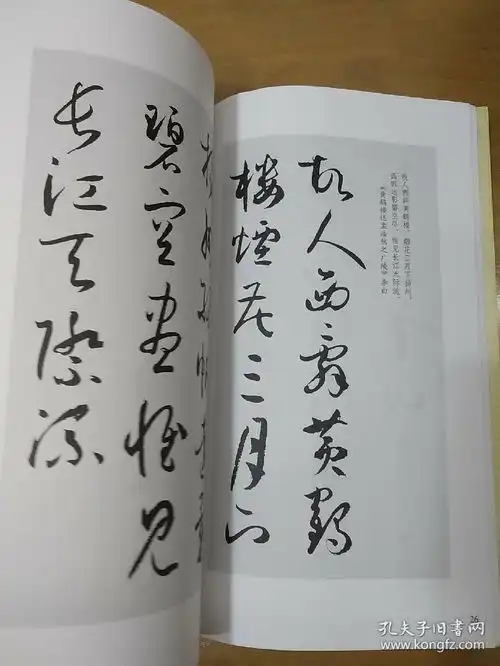 故人西辞黄鹤楼，烟花三月下扬州。
孤帆远影碧空尽，惟见长江天际流。
《黄鹤楼送孟浩然之广陵》李白
故人西辭黄鶴
樓煙花三月下
孤帆遠影
碧空盡惟見
長江天際流
孔夫子旧书网
www.kongfz.com